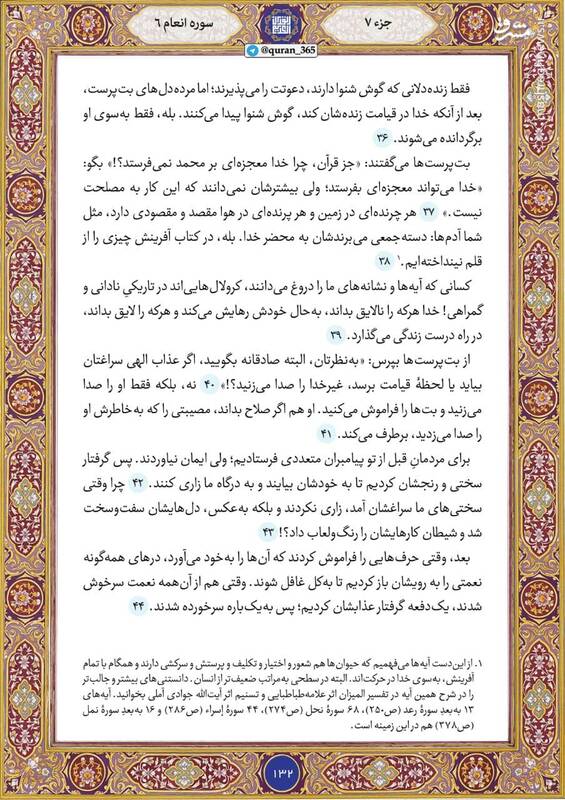 جزء ۷
سوره انعام ۶
مشرق
@quran_365
فقط زنده‌دلانی که گوش شنوا دارند، دعوتت را می‌پذیرند؛ اما مرده‌دل‌های بت‌پرست،
بعد از آنکه خدا در قیامت زنده‌شان کند، گوش شنوا پیدا می‌کنند. بله، فقط به‌سوی او
برگردانده می‌شوند. ۳۶
بت‌پرست‌ها می‌گفتند: «جز قرآن، چرا خدا معجزه‌ای بر محمد نمی‌فرستد؟!» بگو:
«خدا می‌تواند معجزه‌ای بفرستد؛ ولی بیشترشان نمی‌دانند که این کار به مصلحت
نیست.» ۳۷ هر چرنده‌ای در زمین و هر پرنده‌ای در هوا مقصد و مقصودی دارد، مثل
شما آدم‌ها: دسته‌جمعی می‌برندشان به محضر خدا. بله، در کتاب آفرینش چیزی را از
قلم نینداخته‌ایم.۱ ۳۸
کسانی که آیه‌ها و نشانه‌های ما را دروغ می‌دانند، کرولال‌هایی‌اند در تاریکیِ نادانی و
گمراهی! خدا هرکه را نالایق بداند، به‌حال خودش رهایش می‌کند و هرکه را لایق بداند،
در راه درست زندگی می‌گذارد. ۳۹
از بت‌پرست‌ها بپرس: «به‌نظرتان، البته صادقانه بگویید، اگر عذاب الهی سراغتان
بیاید یا لحظهٔ قیامت برسد، غیرخدا را صدا می‌زنید؟!» ۴۰ نه، بلکه فقط او را صدا
می‌زنید و بت‌ها را فراموش می‌کنید. او هم اگر صلاح بداند، مصیبتی را که به‌خاطرش او
را صدا می‌زدید، برطرف می‌کند. ۴۱
برای مردمانِ قبل از تو پیامبران متعددی فرستادیم؛ ولی ایمان نیاوردند. پس گرفتار
سختی و رنجشان کردیم تا به خودشان بیایند و به درگاه ما زاری کنند. ۴۲ چرا وقتی
سختی‌های ما سراغشان آمد، زاری نکردند و بلکه به‌عکس، دل‌هایشان سفت‌وسخت
شد و شیطان کارهایشان را رنگ‌ولعاب داد؟! ۴۳
بعد، وقتی حرف‌هایی را فراموش کردند که آن‌ها را به‌خود می‌آورد، درهای همه‌گونه
نعمتی را به رویشان باز کردیم تا به‌کل غافل شوند. وقتی هم از آن‌همه نعمت سرخوش
شدند، یک‌دفعه گرفتار عذابشان کردیم؛ پس به‌یک‌باره سرخورده شدند. ۴۴
۱. از این‌دست آیه‌ها می‌فهمیم که حیوان‌ها هم شعور و اختیار و تکلیف و پرستش و سرکشی دارند و همگام با تمام
آفرینش، به‌سوی خدا در حرکت‌اند. البته در سطحی به‌مراتب ضعیف‌تر از انسان. دانستنی‌های بیشتر و جالب‌تر
را در شرح همین آیه در تفسیر المیزان اثر علامه‌طباطبایی و تسنیم اثر آیت‌الله جوادی آملی بخوانید. آیه‌های
۱۳ به‌بعدِ سورهٔ رعد (ص۲۵۰)، ۶۸ سورهٔ نحل (ص۲۷۴)، ۴۴ سورهٔ إسراء (ص۲۸۶) و ۱۶ به‌بعدِ سورهٔ نمل
(ص۳۷۸) هم در این زمینه است.
۱۳۲